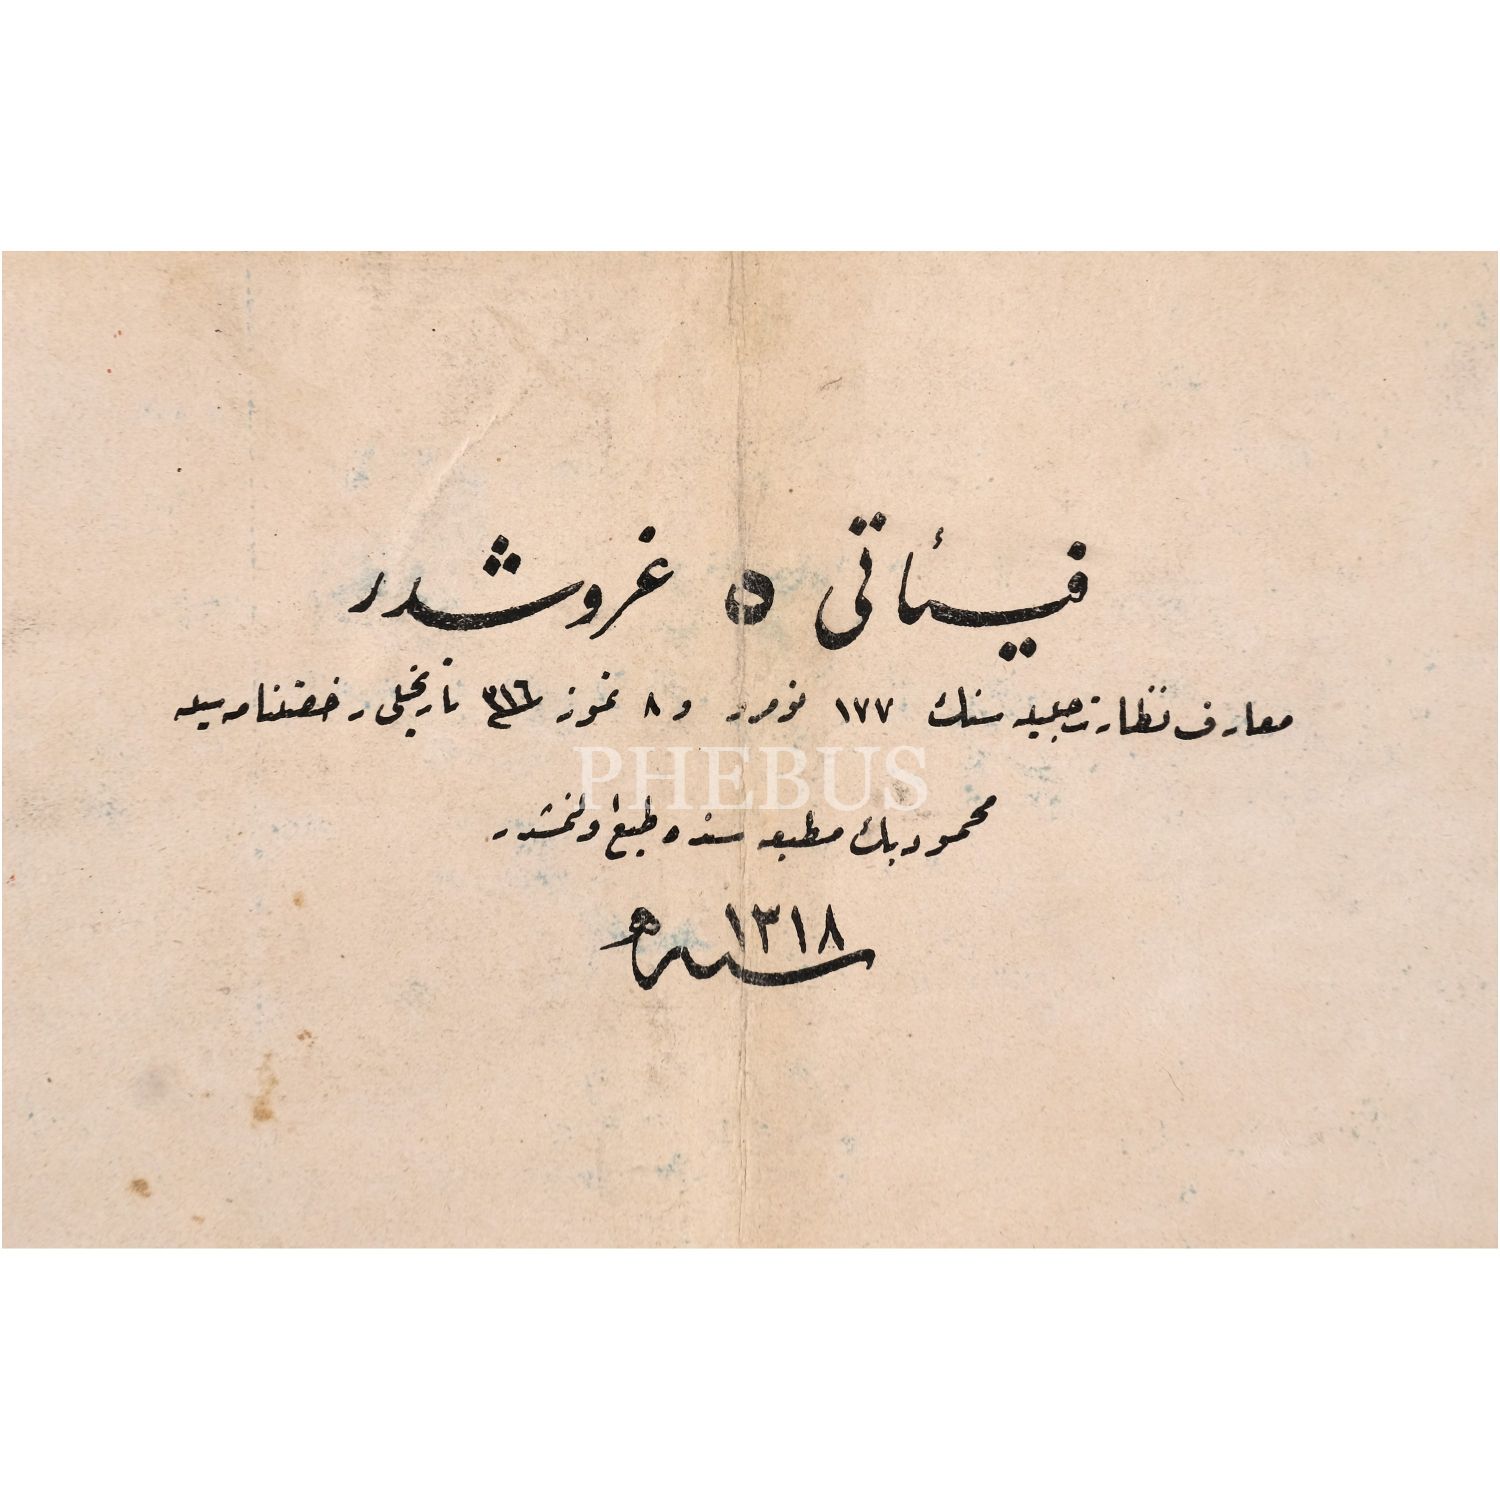 فيئاتی ٥ غروشدر
معارف نظارت جليله سنك ١٧٧ نومرو و ٨ تموز سنه ٣١٦ تاريخلی رخصتنامه سيله
PHEBUS
محمود بك مطبعه سنده طبع اولنمشدر
سنه ١٣١٨